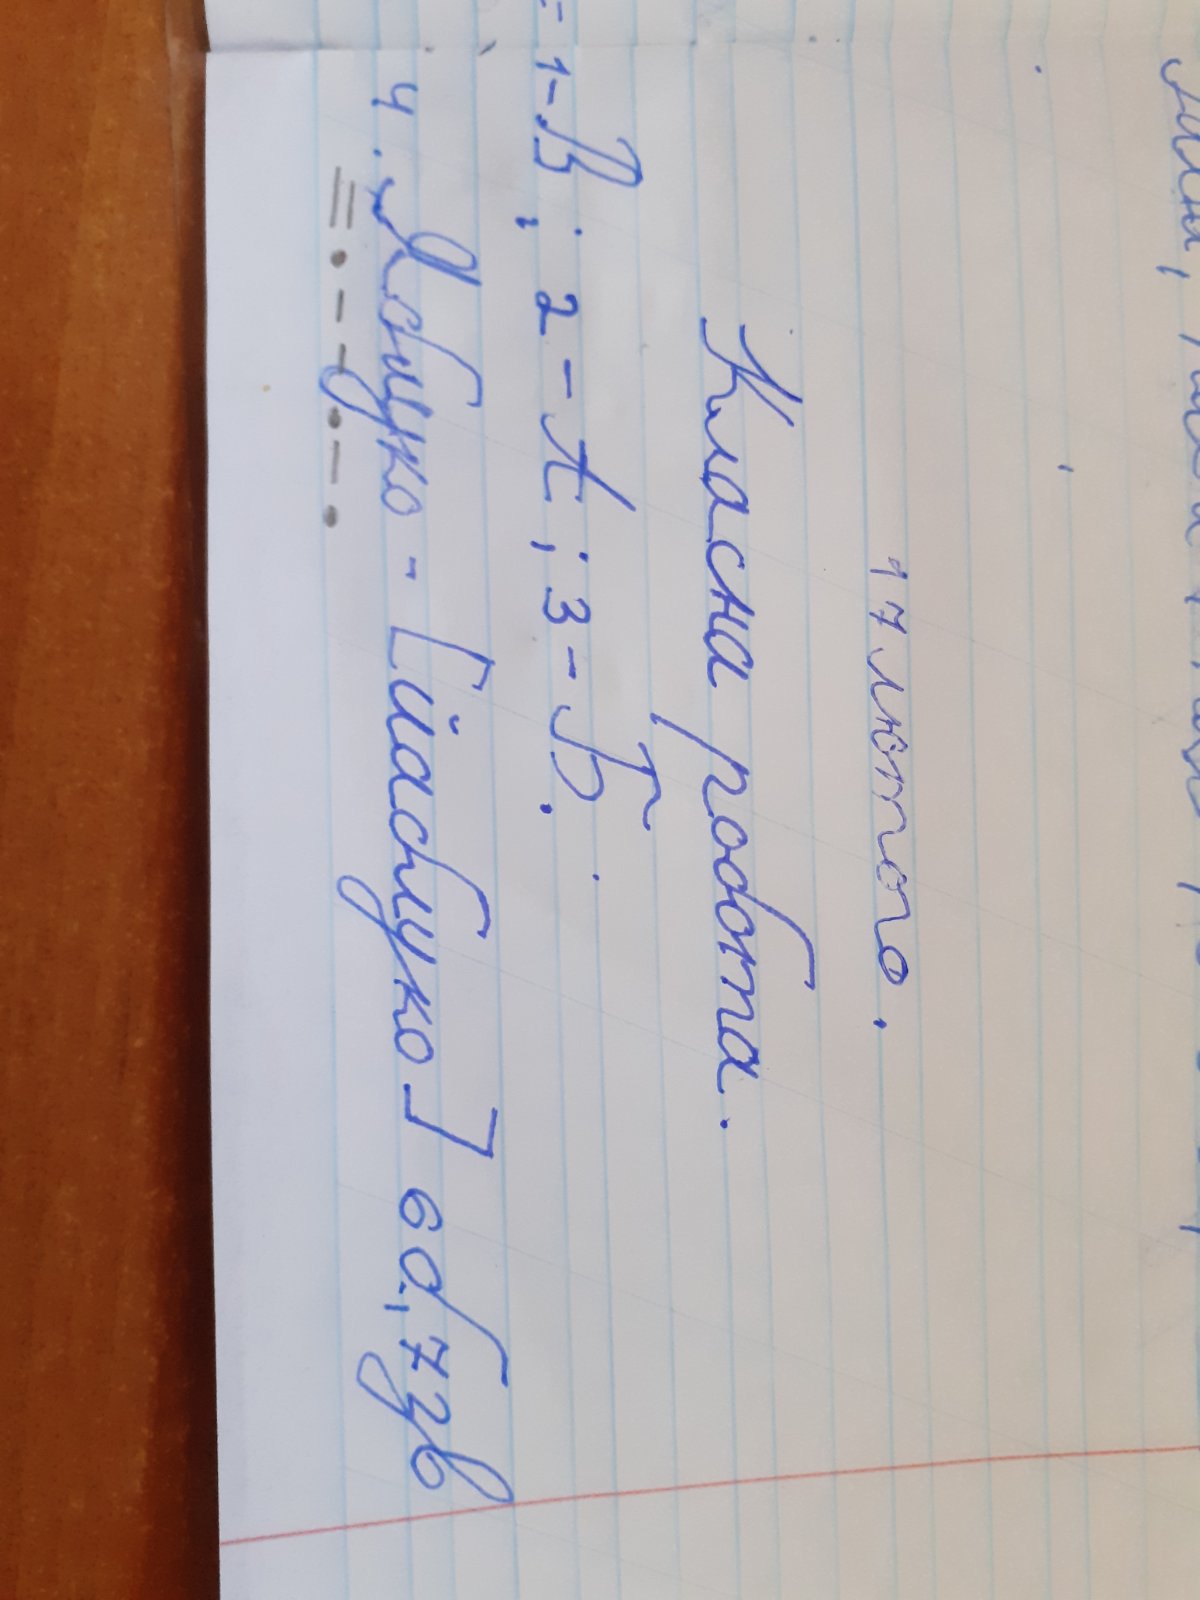 17 лютого.
Класна робота.
1-В; 2-А; 3-Б.
4. Яблуко - [йаблуко] 6б, 7зв